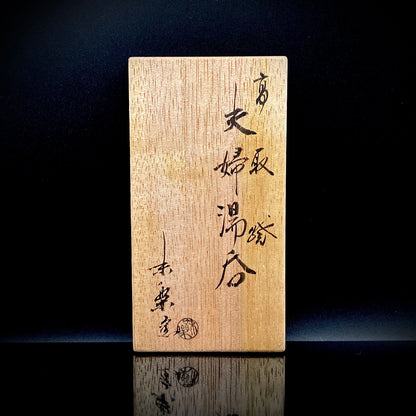 高取焼
夫婦湯呑
未楽窯